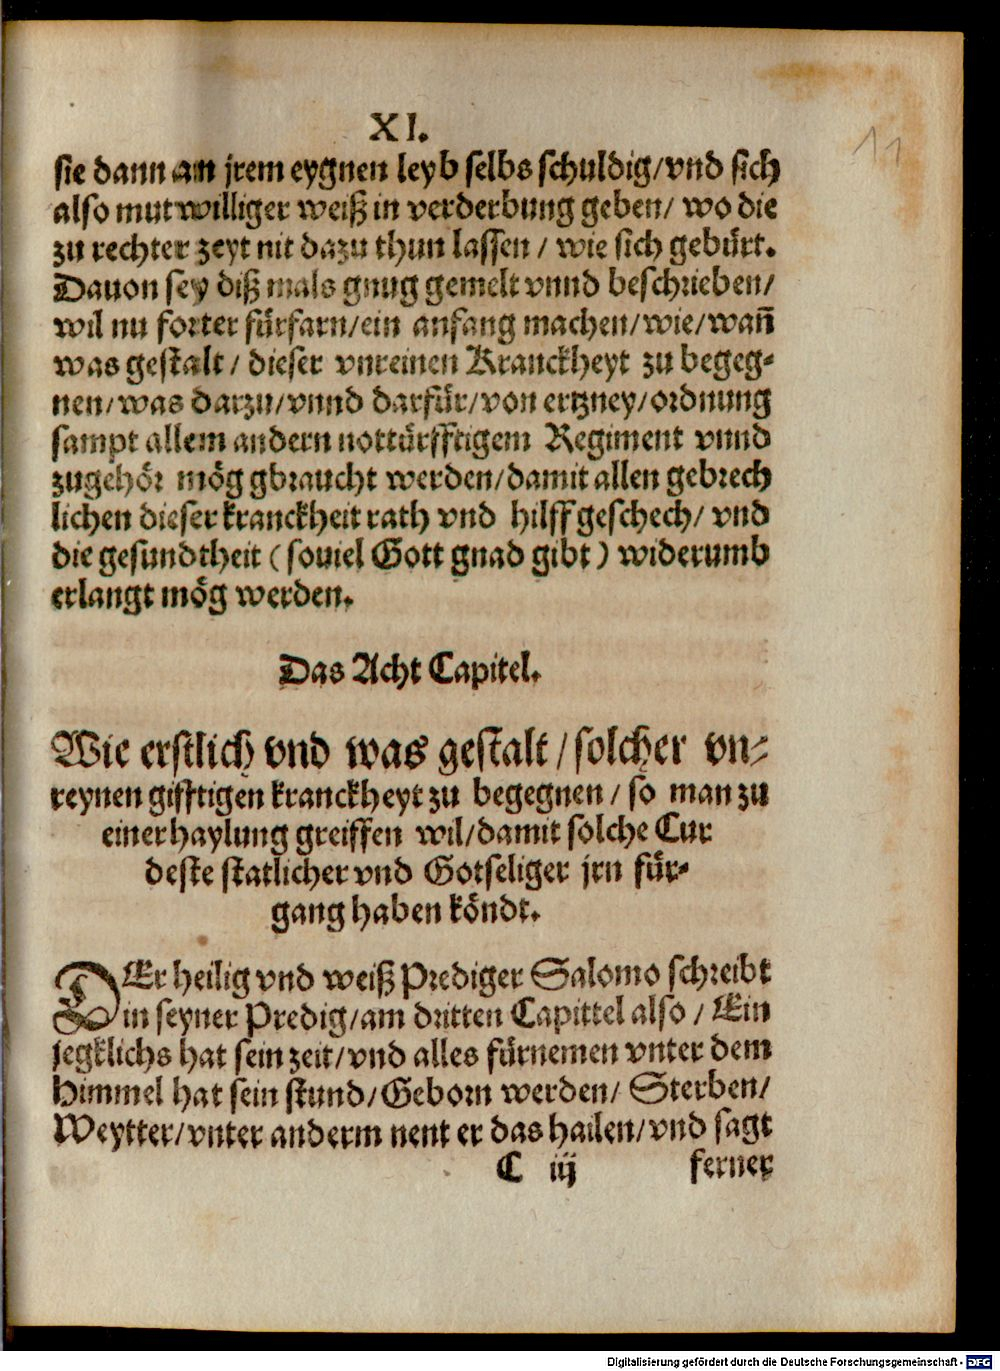 XI.
11
sie dann an jrem eygnen leyb selbs schuldig/vnd sich
also mutwilliger weiß in verderbung geben/ wo die
zu rechter zeyt nit dazu thun lassen / wie sich gebürt.
Dauon sey diß mals gnug gemelt vnnd beschrieben/
wil nu forter fürfarn/ein anfang machen/wie/wañ
was gestalt / dieser vnreinen Kranckheyt zu begeg-
nen/was darzu/vnnd darfür/von ertzney/ordnung
sampt allem andern nottürfftigem Regiment vnnd
zugehör mög gbraucht werden/damit allen gebrech
lichen dieser kranckheit rath vnd hilff geschech/ vnd
die gesundtheit ( souiel Gott gnad gibt ) widerumb
erlangt mög werden.
Das Acht Capitel.
Wie erstlich vnd was gestalt / solcher vn-
reynen gifftigen kranckheyt zu begegnen / so man zu
einer haylung greiffen wil/damit solche Cur
deste statlicher vnd Gotseliger jrn für-
gang haben köndt.
DEr heilig vnd weiß Prediger Salomo schreibt
in seyner Predig/am dritten Capittel also / Ein
jegklichs hat sein zeit/vnd alles fürnemen vnter dem
Himmel hat sein stund/Geborn werden/ Sterben/
Weytter/vnter anderm nent er das hailen/vnd sagt
C iij ferner
Digitalisierung gefördert durch die Deutsche Forschungsgemeinschaft - DFG